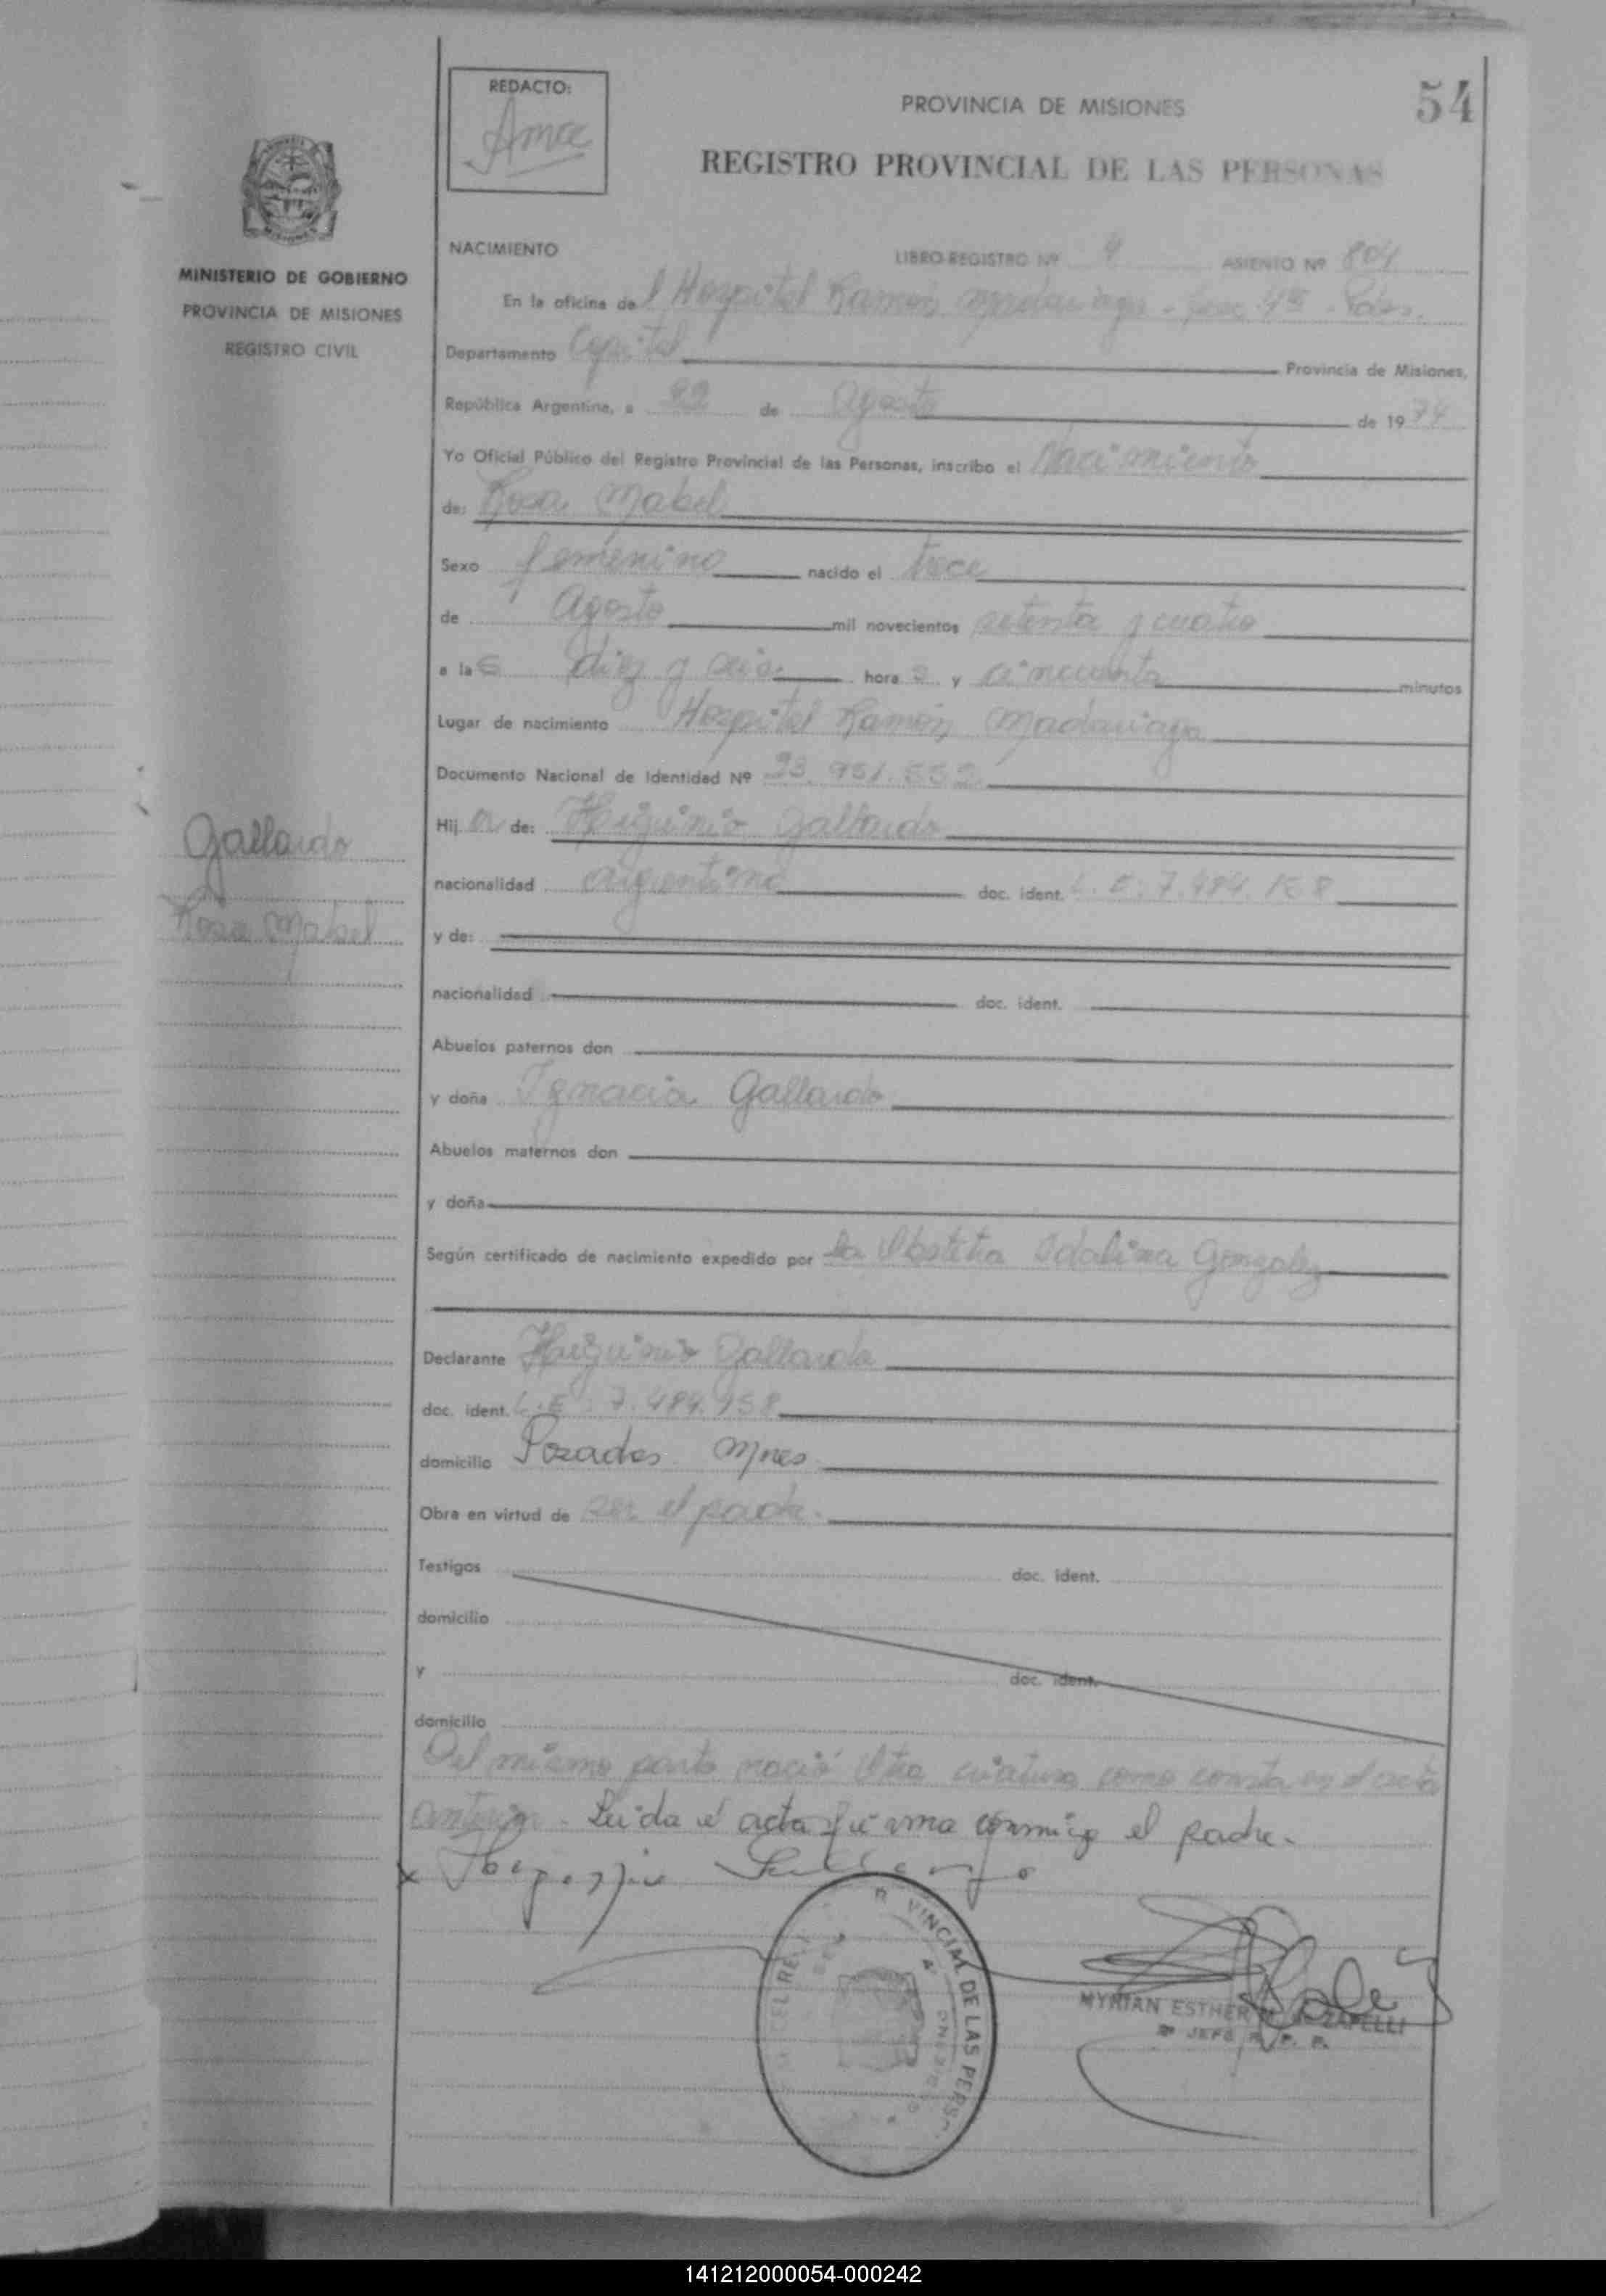 54
REDACTO:
PROVINCIA DE MISIONES
REGISTRO PROVINCIAL DE LAS PERSONAS
MINISTERIO DE GOBIERNO
PROVINCIA DE MISIONES
REGISTRO CIVIL
NACIMIENTO LIBRO-REGISTRO Nº 4 ASIENTO Nº 804
En la oficina del Hospital Ramón Madariaga
Departamento Capital Provincia de Misiones,
República Argentina, a 22 de Agosto de 1974
Yo Oficial Público del Registro Provincial de las Personas, inscribo el Nacimiento
de: Rosa Mabel
Sexo femenino nacido el trece
de Agosto mil novecientos setenta y cuatro
a las diez y seis horas y cincuenta minutos
Lugar de nacimiento Hospital Ramón Madariaga
Documento Nacional de Identidad Nº 23.951.552
Gallardo
Rosa Mabel
Hija de: Higinio Gallardo
nacionalidad argentina doc. ident. L.E: 7.484.158
y de:
nacionalidad doc. ident.
Abuelos paternos don
y doña Ignacia Gallardo
Abuelos maternos don
y doña
Según certificado de nacimiento expedido por la Obstetra Idalina Gonzalez
Declarante Higinio Gallardo
doc. ident. L.E: 7.484.158
domicilio Posadas Mnes
Obra en virtud de ser el padre.
Testigos doc. ident.
domicilio
y doc. ident.
domicilio
Del mismo parto nació otra criatura como consta en el acta
anterior. Leída el acta firma conmigo el padre.
VINCIAL DE LAS PERS
MYRIAN ESTHER ZAPELLI
JEFE R. P. P.
141212000054-000242